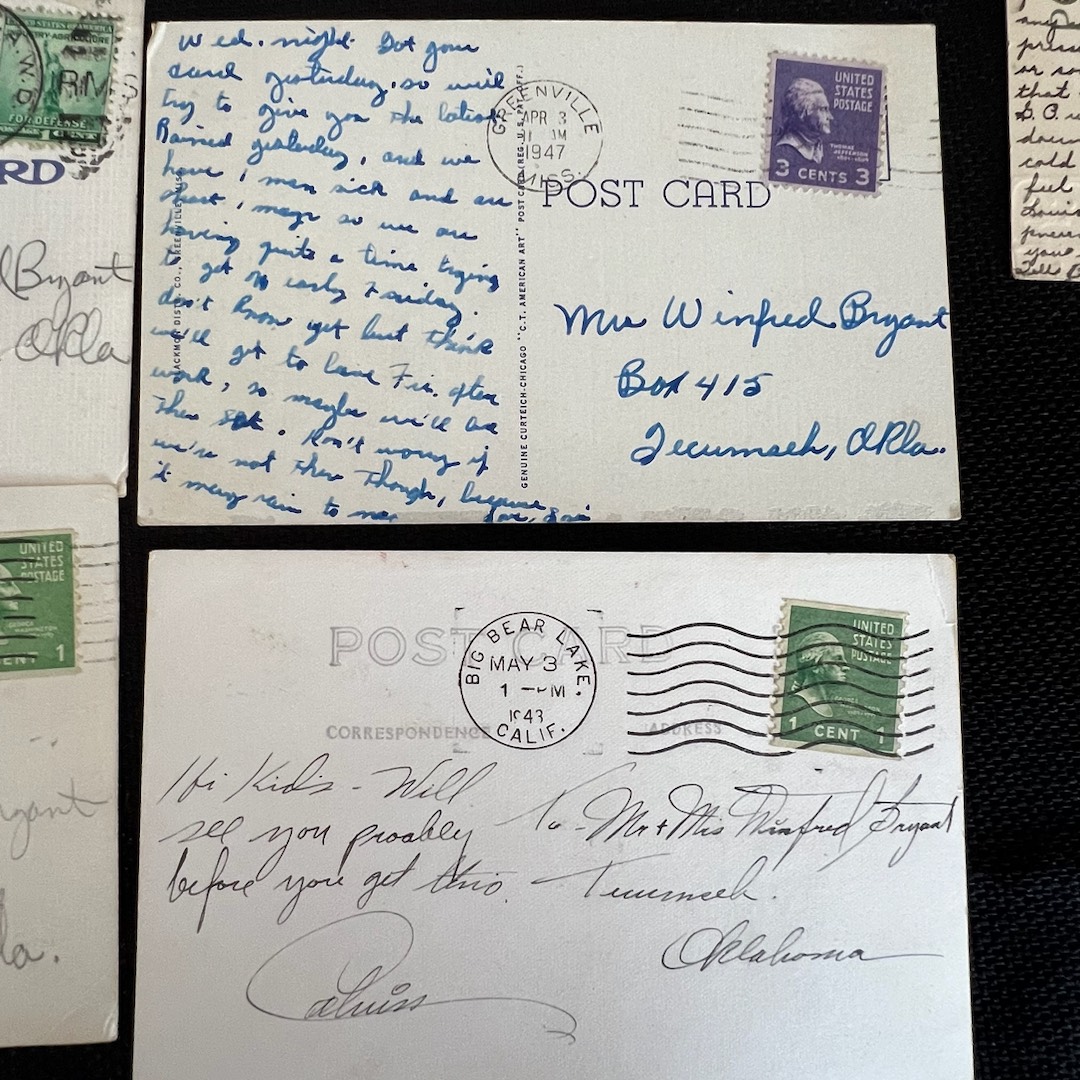 UNITED STATES OF AMERICA
INDUSTRY-AGRICULTURE
FOR DEFENSE
1 CENT
RD
Bryant
Okla
UNITED
STATES
POSTAGE
CENT 1
ryant
la.
Wed. night. Got your
card yesterday, so will
try to give you the latest
Rained yesterday, and we
have 1 man sick and are
short 1 mayr so we are
having quite a time trying
to get 76 early Friday.
don't know yet but think
we'll get to leave Fri. after
work, so maybe we'll be
there Sat. Don't worry if
we're not there though, because
it may rain to no
Love,
GREENVILLE
APR 3
AM
1947
MISS.
UNITED
STATES
POSTAGE
THOMAS
JEFFERSON
3 CENTS 3
POST CARD
GENUINE CURTEICH-CHICAGO "C.T. AMERICAN ART" POST CARD (REG. U.S. PAT. OFF.)
Mrs Winfred Bryant
Box 415
Tecumseh, Okla.
POST CARD
BIG BEAR LAKE.
MAY 3
1 - PM
1943
CALIF.
UNITED
STATES
POSTAGE
1 CENT 1
CORRESPONDENCE
ADDRESS
Hi Kids - Will
see you proably
before you get this.
To - Mr + Mrs Winfred Bryant
Tecumseh.
Oklahoma
press
or so
that
cold
feel
Louis
pneu
your